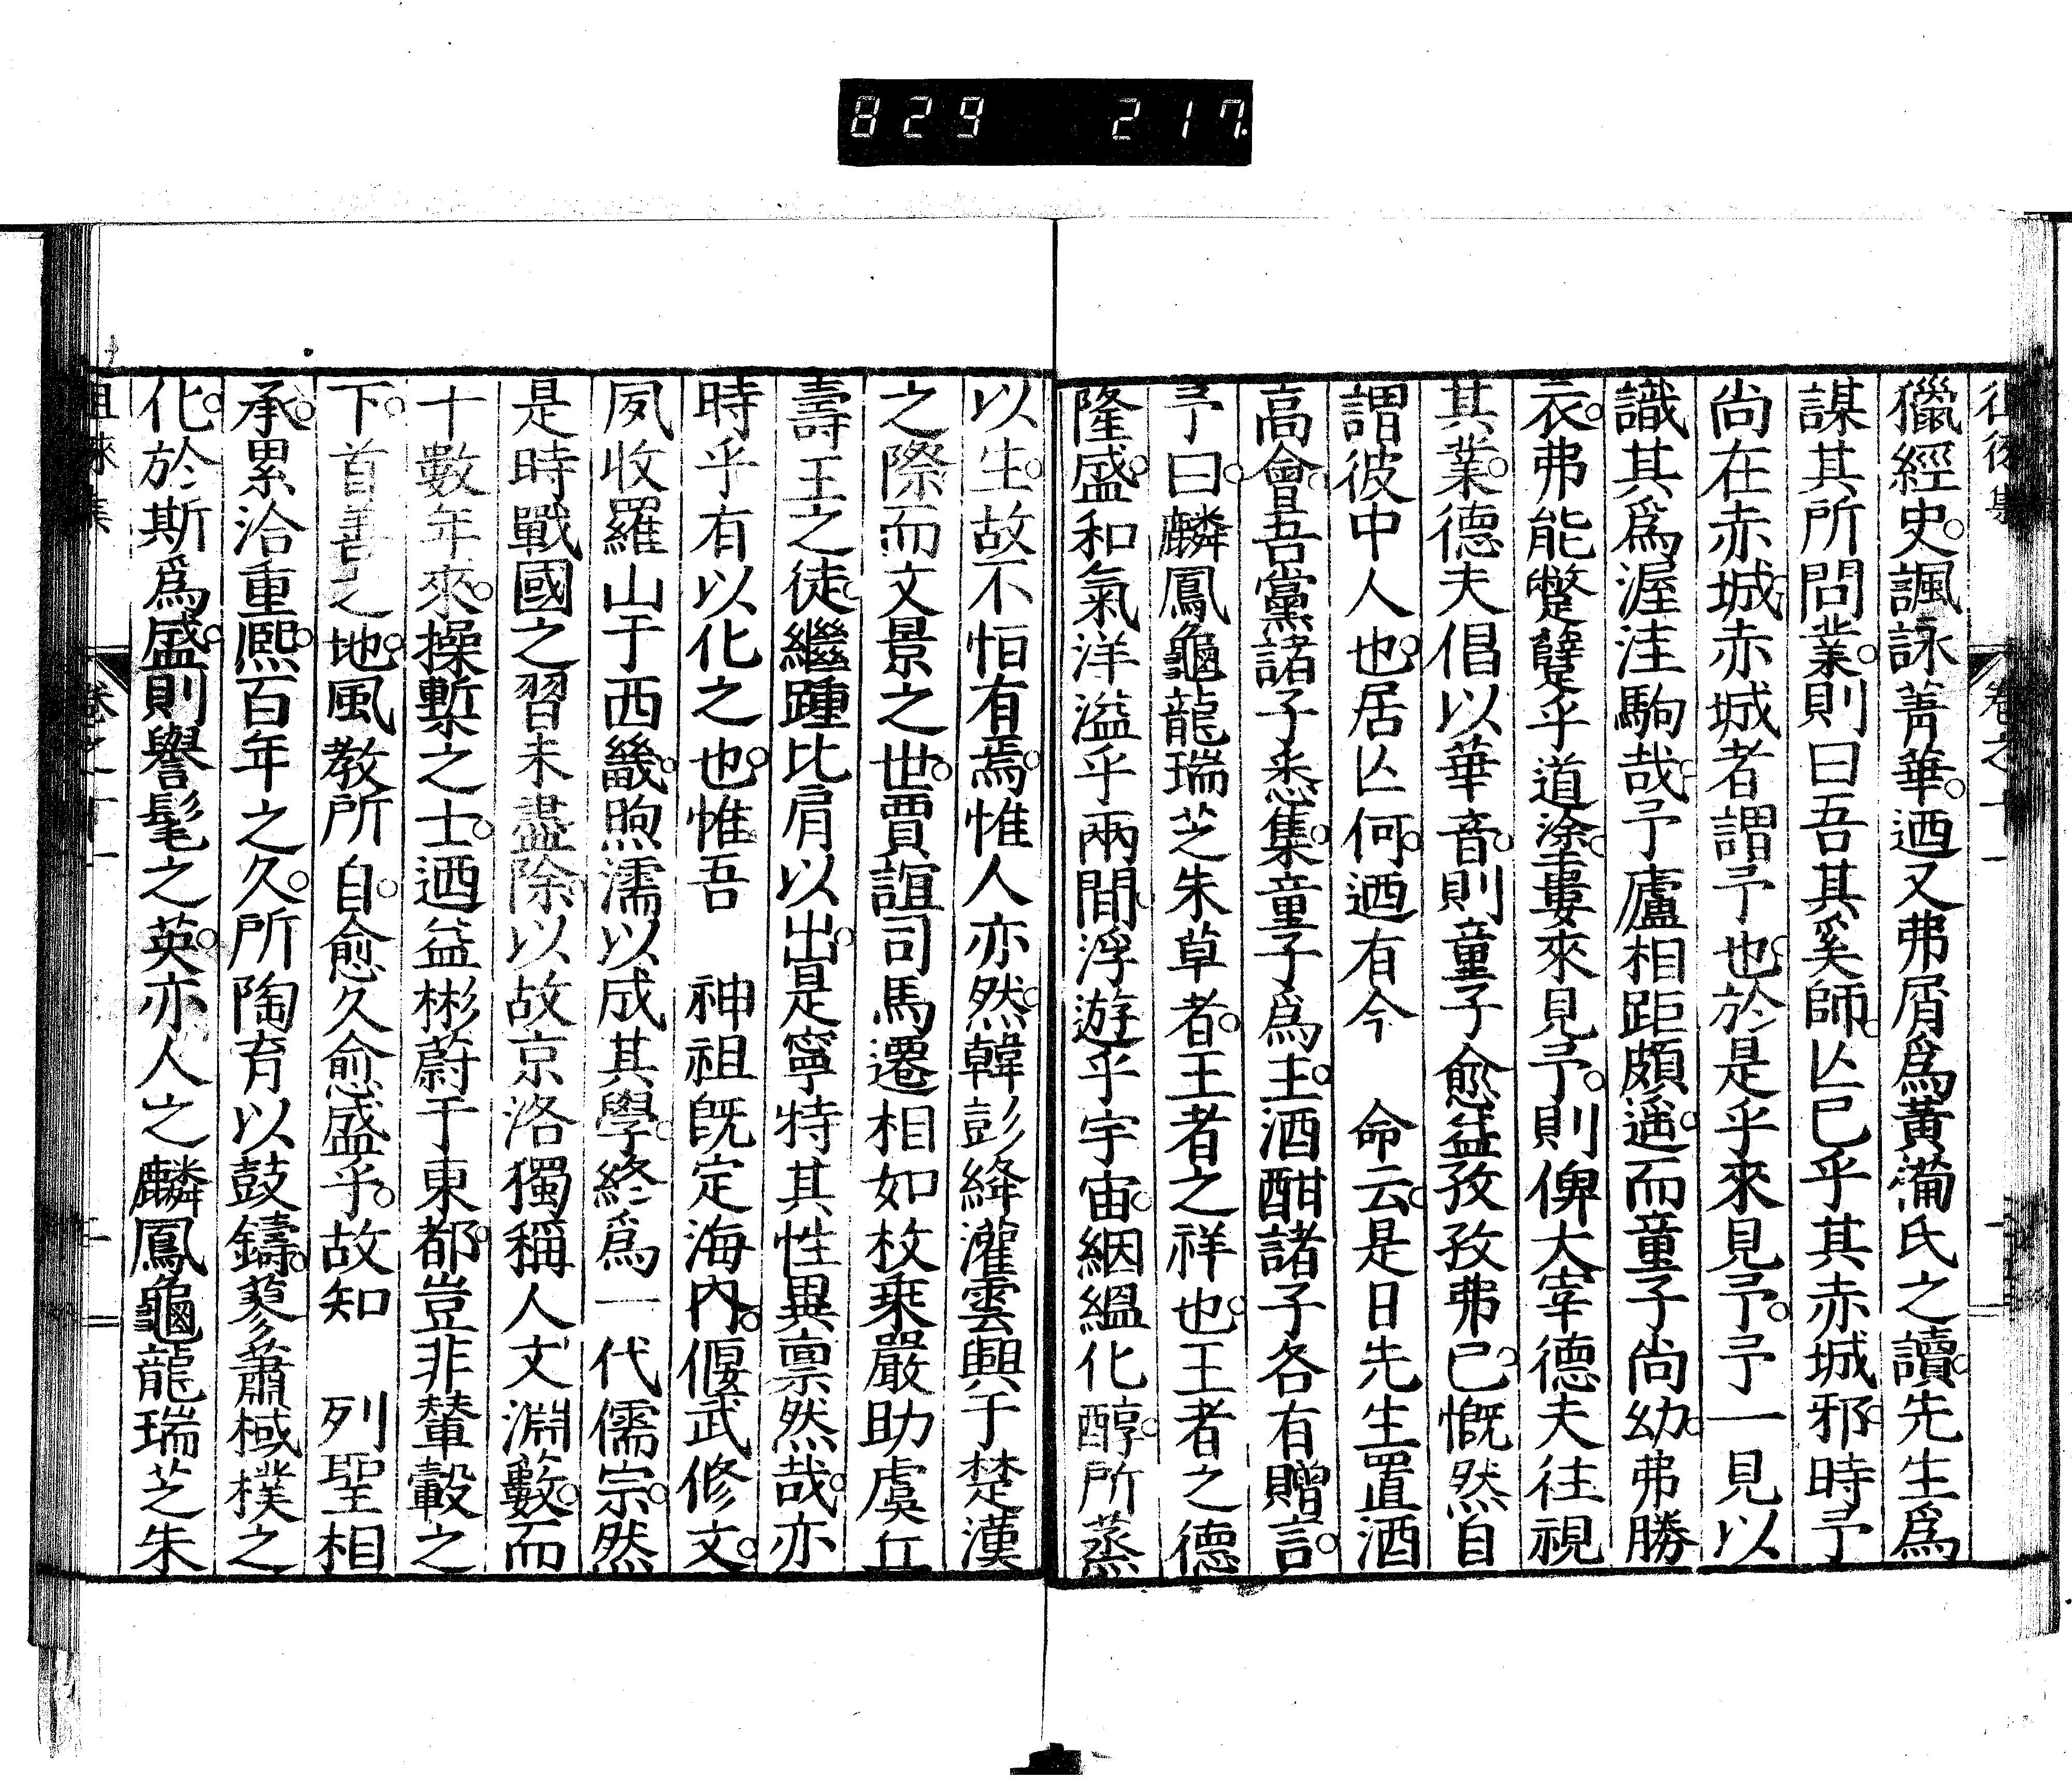 829 217
獵經史。諷詠菁華。迺又弗屑爲黃㒼氏之讀。先生爲
謀其所問業。則曰吾其奚師。亾已乎其赤城邪。時予
尚在赤城。赤城者謂予也。於是乎來見予。予一見以
識其爲渥洼駒哉。予廬相距頗遥。而童子尚幼。弗勝
衣。弗能蹩躠乎道塗。婁來見予。則俾大宰德夫徃視
其業。德夫倡以華音。則童子愈益孜孜弗已。慨然自
謂彼中人也。居亾何。迺有今 命云。是日先生置酒
高會。吾黨諸子悉集。童子爲主。酒酣諸子各有贈言。
予曰。麟鳳龜龍瑞芝朱草者。王者之祥也。王者之德
隆盛。和氣洋溢乎兩間。浮遊乎宇宙。絪縕化醇。所蒸
以生。故不恒有焉。惟人亦然。韓彭絳灌雲興于楚漢
之際。而文景之世。賈誼司馬遷相如枚乗嚴助虞丘
壽王之徒。繼踵比肩以出。是寧特其性異禀然哉。亦
時乎有以化之也。惟吾 神祖既定海內。偃武修文。
夙收羅山于西畿。煦濡以成其學。終爲一代儒宗。然
是時戰國之習未盡除。以故京洛獨稱人文淵藪。而
十數年來。操槧之士。迺益彬蔚于東都。豈非輦轂之
下。首善之地。風教所 自。愈久愈盛乎。故知 列聖相
承。累洽重熈。百年之久。所陶育以鼓鑄。蓼蕭棫樸之
化。於斯爲盛。則譽髦之英。亦人之麟鳳龜龍瑞芝朱